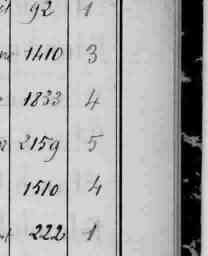 92 1
1410 3
1833 4
2159 5
1510 4
222 1